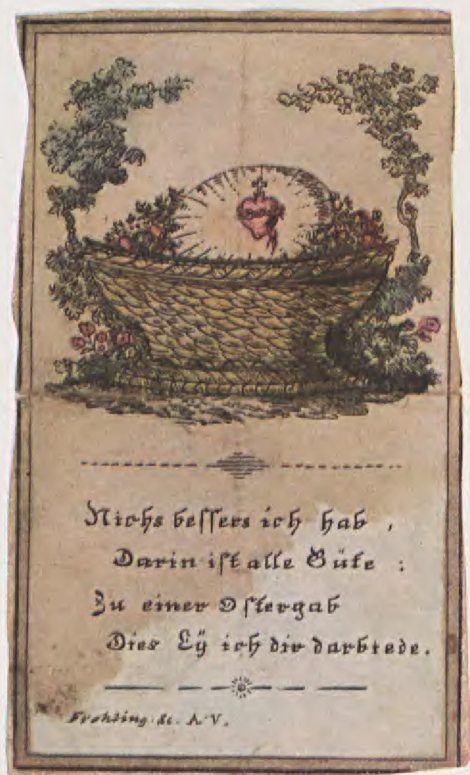 Nichs bessers ich hab,
Darin ist alle Güte:
Zu einer Ostergab
Dies Eÿ ich dir darbiede.
A. V.